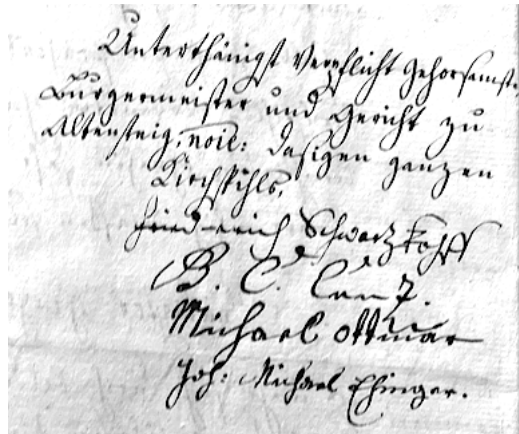 Unterthänigst Verpflicht Gehorsamste
Burgermeister und Gericht zu
Altensteig, noie: dasigen ganzen
Kirchspihls,
Friederich Schwarzkopff
B. C.
Michael Ottmar
Joh: Michael Ehinger.